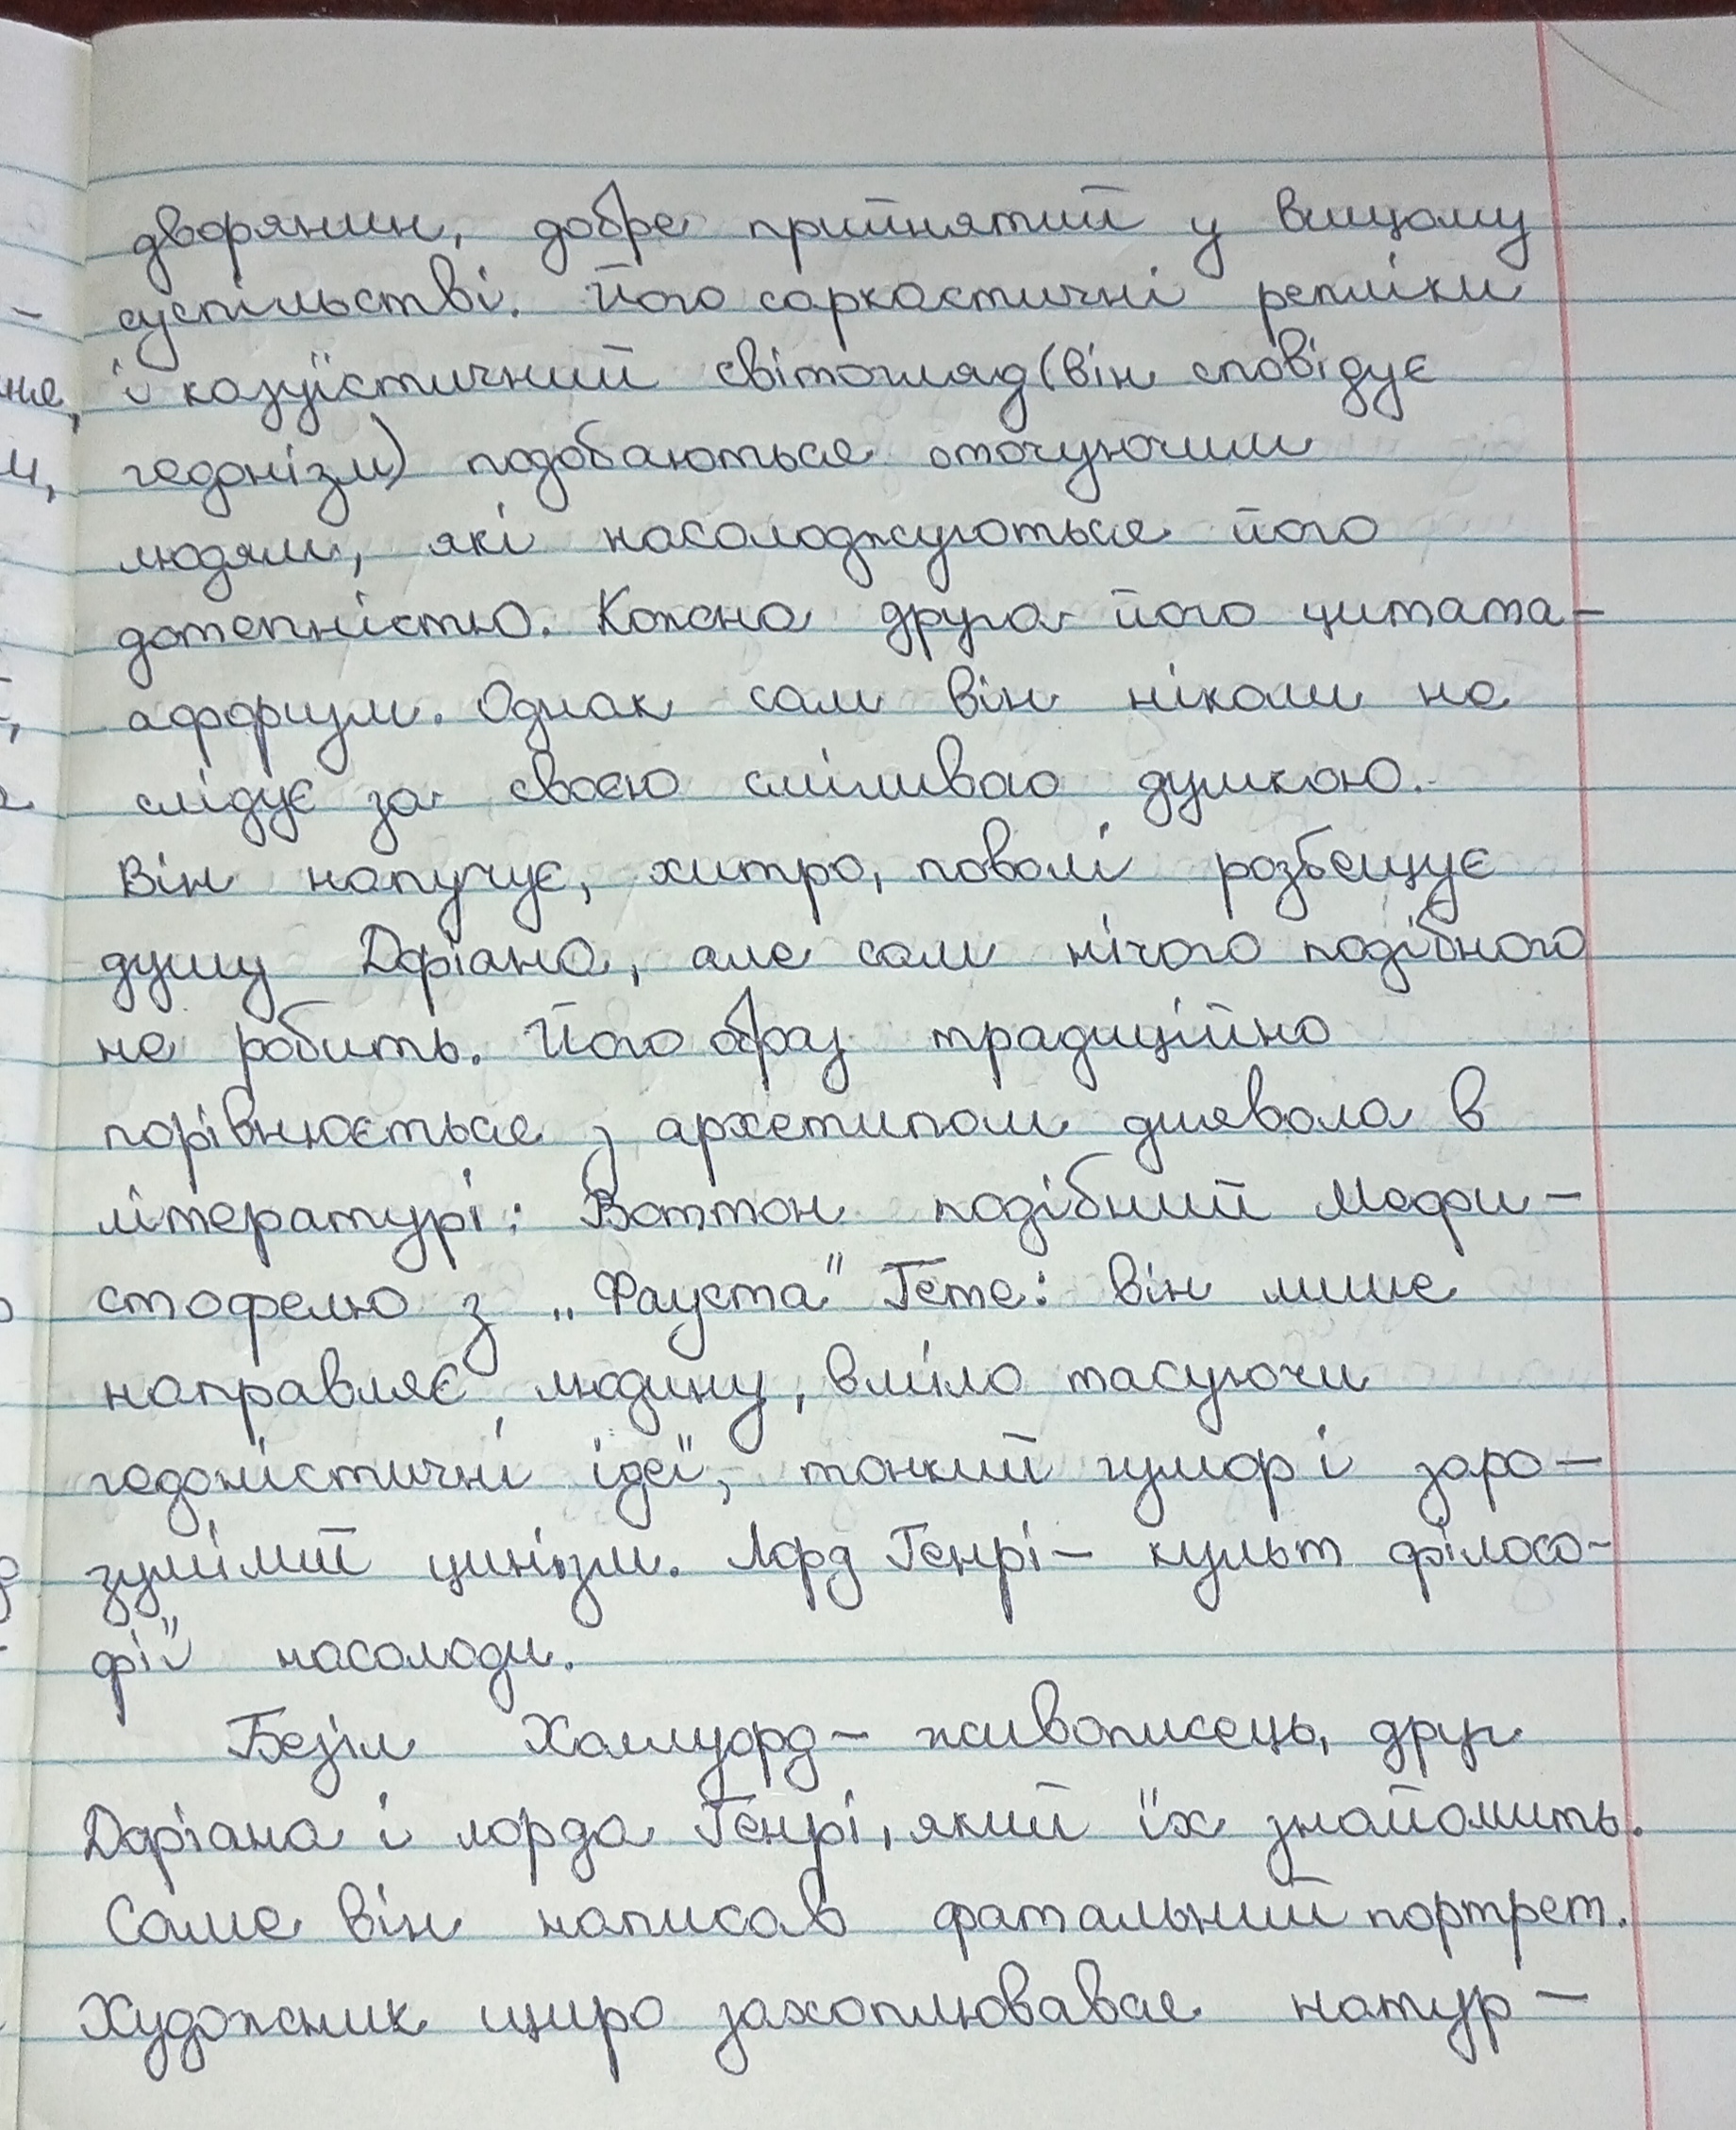 дворянин, добре прийнятий у вищому
суспільстві. Його саркастичні репліки
і казуїстичний світогляд (він сповідує
гедонізм) подобаються оточуючим
людям, які насолоджуються його
дотепністю. Кожна друга його цитата –
афоризм. Однак сам він ніколи не
слідує за своєю сміливою думкою.
Він напучує, хитро, поволі розбещує
душу Доріана, але сам нічого подібного
не робить. Його образ традиційно
порівнюється з архетипом диявола в
літературі: Воттон подібний Мефи-
стофелю з „Фауста" Гете: він лише
направляє людину, вміло тасуючи
гедоністичні ідеї, тонкий гумор і заро-
зумілий цинізм. Лорд Генрі – культ філосо-
фії насолоди.
Безіл Холлуорд – живописець, друг
Доріана і лорда Генрі, який їх знайомить.
Саме він написав фатальний портрет.
Художник щиро захоплювався натур-